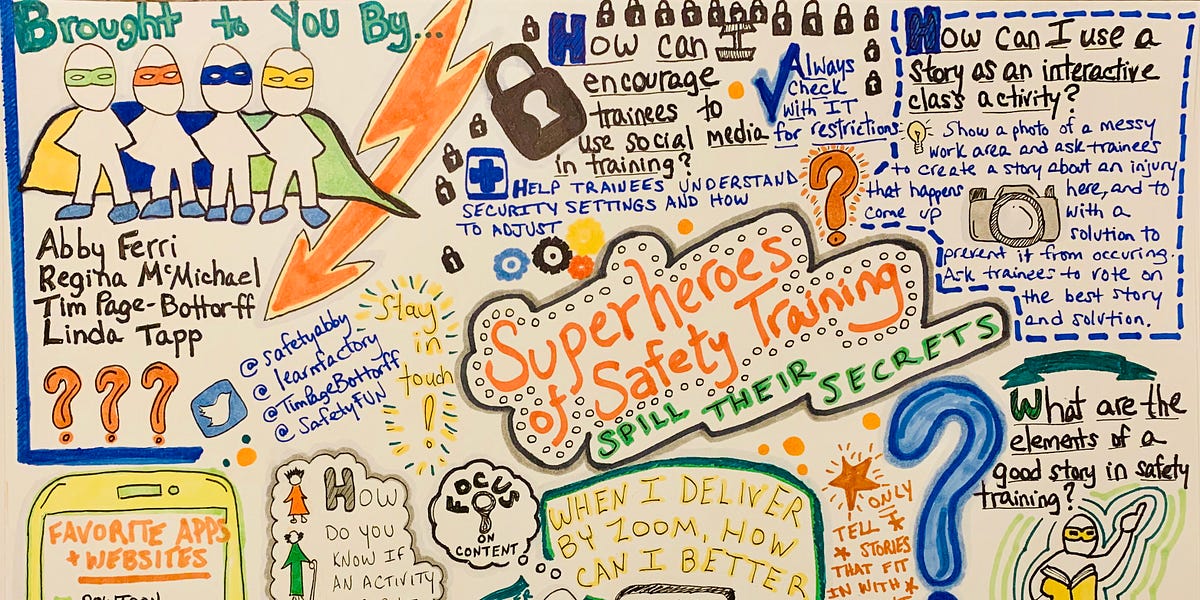 Brought to You By...
Abby Ferri
Regina McMichael
Tim Page-Bottorff
Linda Tapp
???
@safetyabby
@learnfactory
@TimPageBottorff
@SafetyFUN
Stay
in
touch
!
How can I
encourage
trainees to
use social media
in training?
Always
check
with IT
for restrictions
Help trainees understand
security settings and how
to adjust
?
How can I use a
story as an interactive
class activity?
Show a photo of a messy
work area and ask trainees
to create a story about an injury
that happens here, and to
come up with a
solution to
prevent it from occuring.
Ask trainees to vote on
the best story
and solution.
Superheroes
of Safety Training
SPILL THEIR SECRETS
FAVORITE APPS
+ WEBSITES
How
do you
know if
an activity
FOCUS
ON
CONTENT
WHEN I DELIVER
BY ZOOM, HOW
CAN I BETTER
ONLY
TELL
STORIES
THAT FIT
IN WITH
?
What are the
elements of a
good story in safety
training?